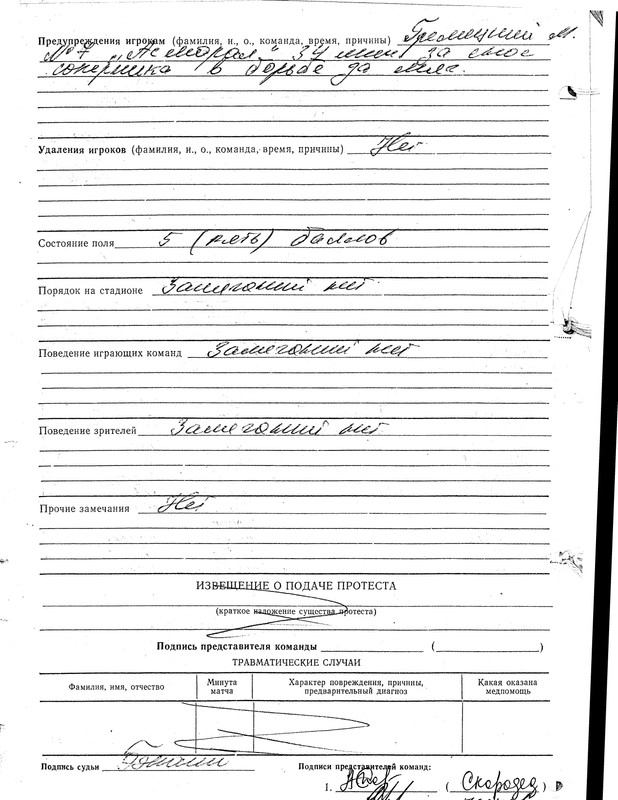 Предупреждения игрокам (фамилия, и., о., команда, время, причины) Гремецкий М.
№ 7 „Асмарал" 37 мин. за снос
соперника в борьбе за мяч.
Удаления игроков (фамилия, и., о., команда, время, причины) Нет
Состояние поля 5 (пять) баллов
Порядок на стадионе Замечаний нет
Поведение играющих команд Замечаний нет
Поведение зрителей Замечаний нет
Прочие замечания Нет
ИЗВЕЩЕНИЕ О ПОДАЧЕ ПРОТЕСТА
(краткое изложение существа протеста)
Подпись представителя команды ( )
ТРАВМАТИЧЕСКИЕ СЛУЧАИ
Фамилия, имя, отчество Минута матча Характер повреждения, причины, предварительный диагноз Какая оказана медпомощь
Подпись судьи Подписи представителей команд:
1. ( )